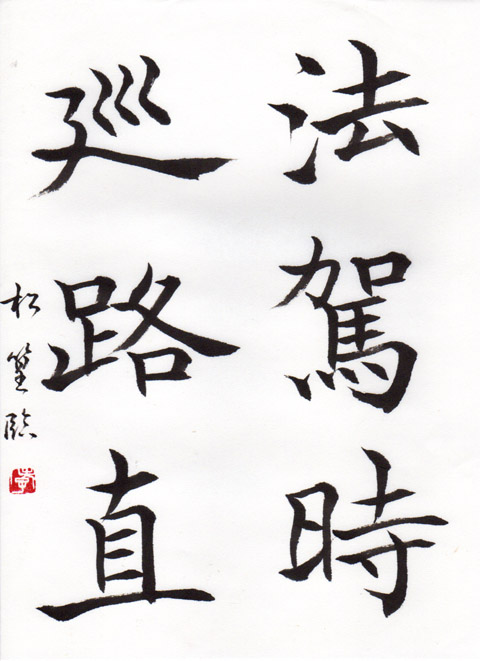 法駕時
巡路直
松篁臨